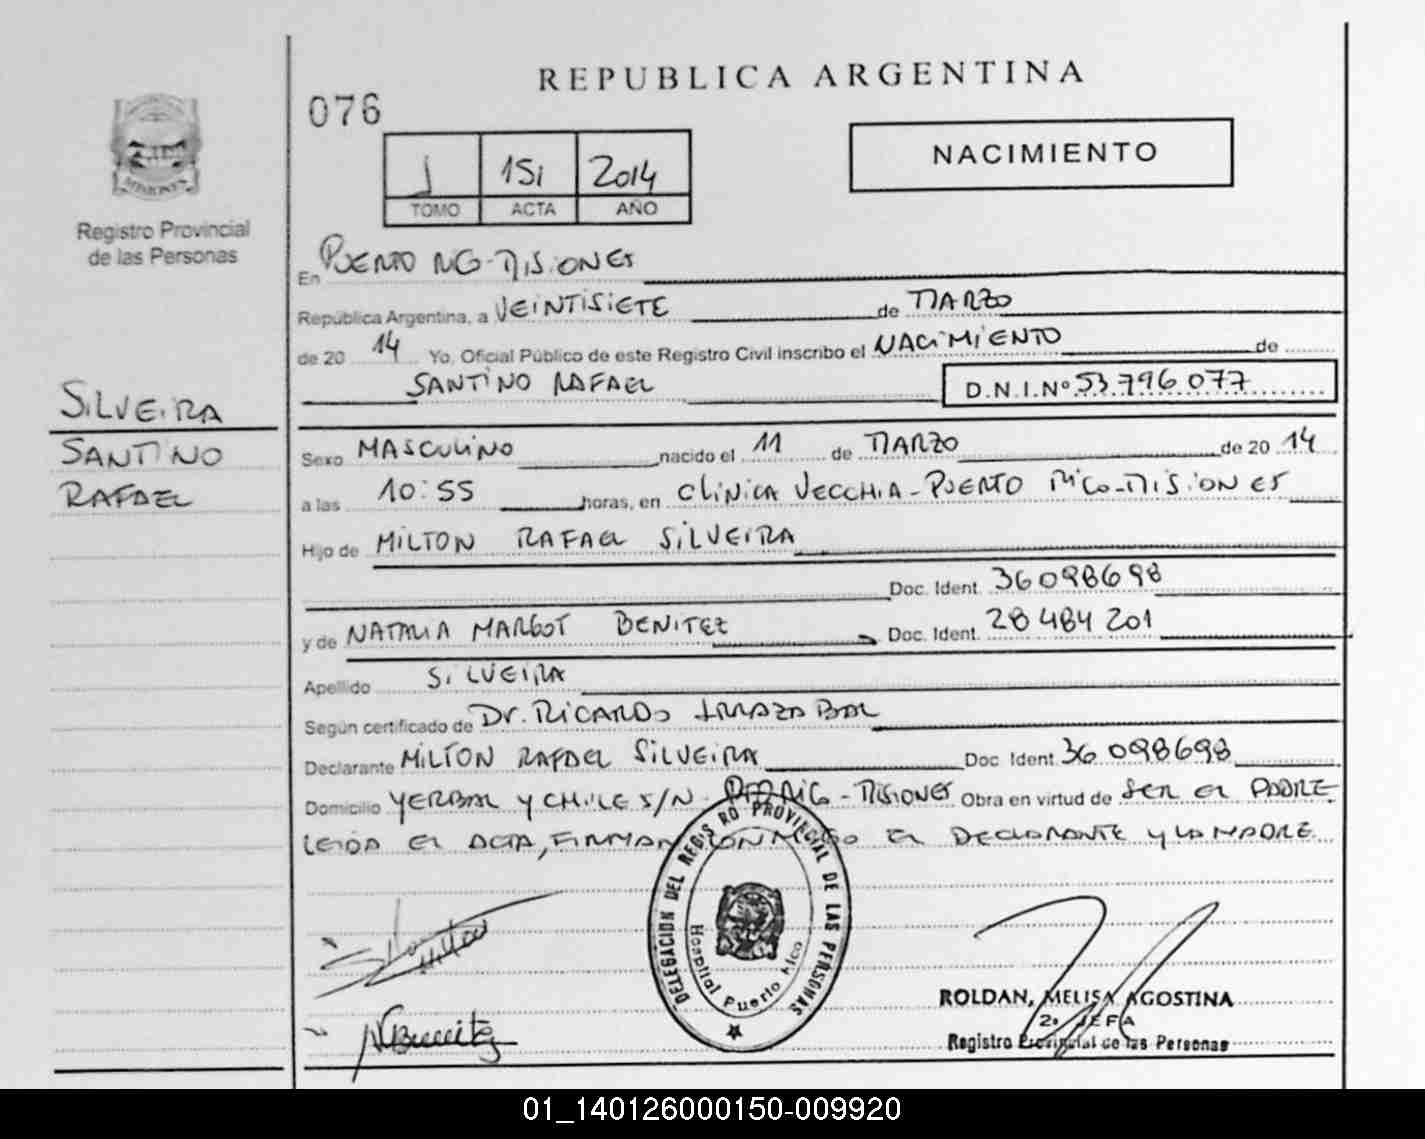 REPUBLICA ARGENTINA
076
1 151 2014
TOMO ACTA AÑO
NACIMIENTO
MISIONES
Registro Provincial
de las Personas
En PUERTO RICO-MISIONES
República Argentina, a VEINTISIETE de MARZO
de 20 14 Yo, Oficial Público de este Registro Civil inscribo el NACIMIENTO de
SANTINO RAFAEL D.N.I.Nº 53.796.077
SILVEIRA
SANTINO
RAFAEL
Sexo MASCULINO nacido el 11 de MARZO de 20 14
a las 10:55 horas, en CLINICA VECCHIA-PUERTO RICO-MISIONES
Hijo de MILTON RAFAEL SILVEIRA
Doc. Ident. 36098698
y de NATALIA MARGOT BENITEZ Doc. Ident. 28 484 201
Apellido SILVEIRA
Según certificado de Dr. RICARDO IRRAZABAL
Declarante MILTON RAFAEL SILVEIRA Doc. Ident. 36 098698
Domicilio YERBAL Y CHILE S/N - RICO - MISIONES Obra en virtud de SER EL PADRE
LEIDA EL ACTA, FIRMAN CONMIGO EL DECLARANTE Y LA MADRE
DELEGACION DEL REGISTRO PROVINCIAL DE LAS PERSONAS
Hospital Puerto Rico
NBenitez
ROLDAN, MELISA AGOSTINA
2º JEFA
Registro Provincial de las Personas
01_140126000150-009920